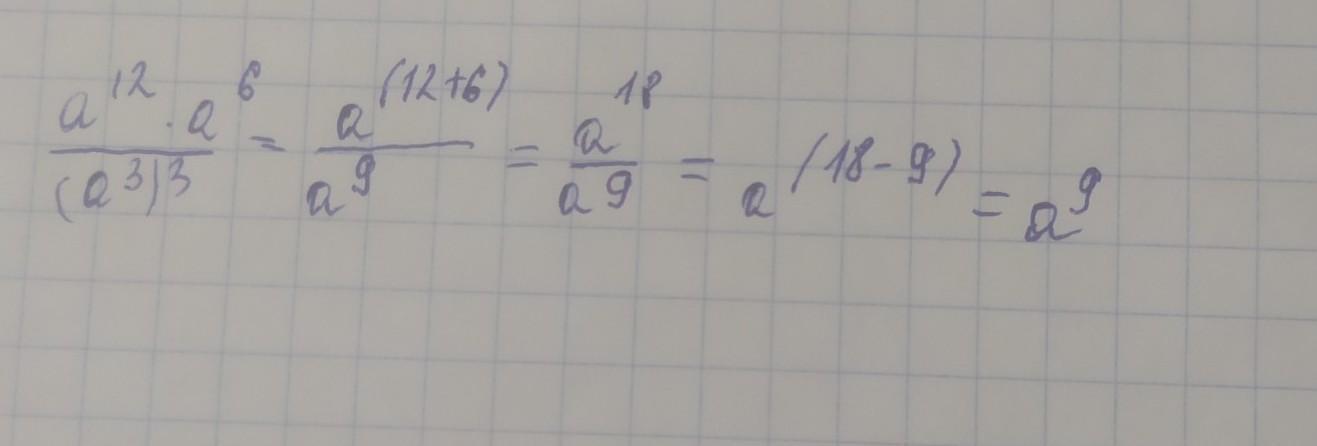 \frac{a^{12} \cdot a^{6}}{(a^{3})^{3}} = \frac{a^{(12+6)}}{a^{9}} = \frac{a^{18}}{a^{9}} = a^{(18-9)} = a^{9}